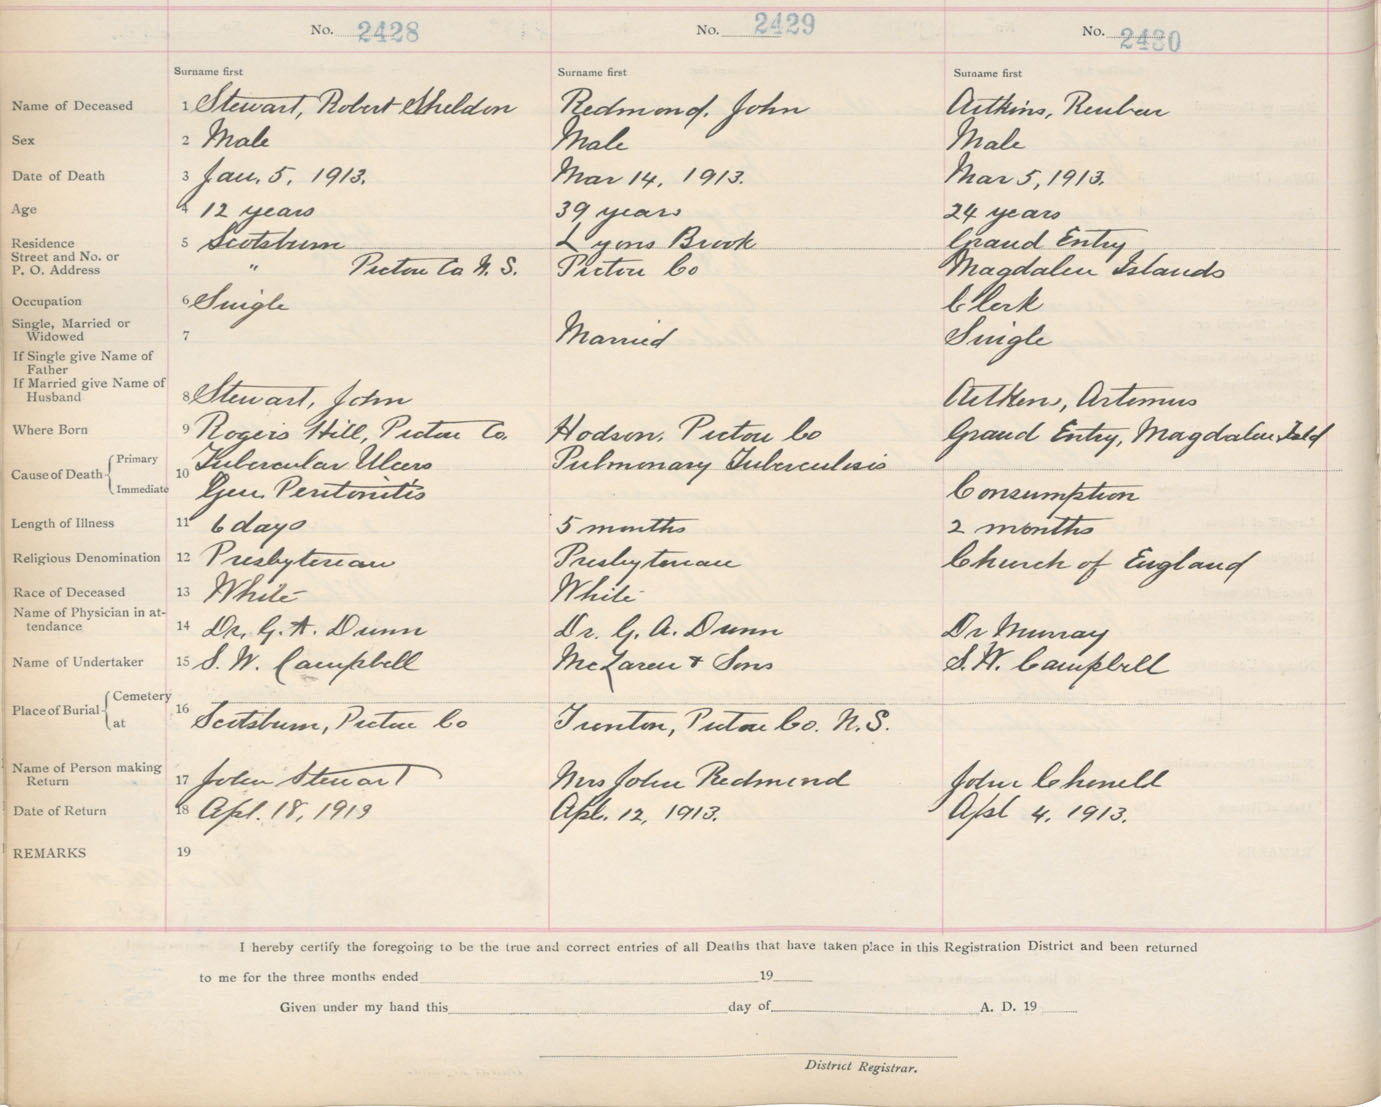 No. 2428 No. 2429 No. 2430
Surname first Surname first Surname first
Name of Deceased 1 Stewart, Robert Sheldon Redmond, John Aitkins, Reuben
Sex 2 Male Male Male
Date of Death 3 Jan. 5, 1913. Mar 14, 1913. Mar 5, 1913.
Age 4 12 years 39 years 24 years
Residence 5 Scotsburn Lyons Brook Grand Entry
Street and No. or
P. O. Address " Pictou Co N. S. Pictou Co Magdalen Islands
Occupation 6 Single Clerk
Single, Married or
Widowed 7 Married Single
If Single give Name of
Father
If Married give Name of
Husband 8 Stewart, John Aitkens, Artemus
Where Born 9 Rogers Hill, Pictou Co. Hodson, Pictou Co Grand Entry, Magdalen Isld
Cause of Death Primary 10 Tubercular Ulcers Pulmonary Tuberculosis
Immediate Gen. Peritonitis Consumption
Length of Illness 11 6 days 5 months 2 months
Religious Denomination 12 Presbyterian Presbyterian Church of England
Race of Deceased 13 White White
Name of Physician in at-
tendance 14 Dr. G. A. Dunn Dr. G. A. Dunn Dr Murray
Name of Undertaker 15 S. W. Campbell McLaren & Sons S. W. Campbell
Place of Burial Cemetery 16
at Scotsburn, Pictou Co Trenton, Pictou Co. N. S.
Name of Person making
Return 17 John Stewart Mrs John Redmond John
Date of Return 18 Apl. 18, 1913 Apl. 12, 1913. Apl 4, 1913.
REMARKS 19
I hereby certify the foregoing to be the true and correct entries of all Deaths that have taken place in this Registration District and been returned
to me for the three months ended 19
Given under my hand this day of A. D. 19
District Registrar.